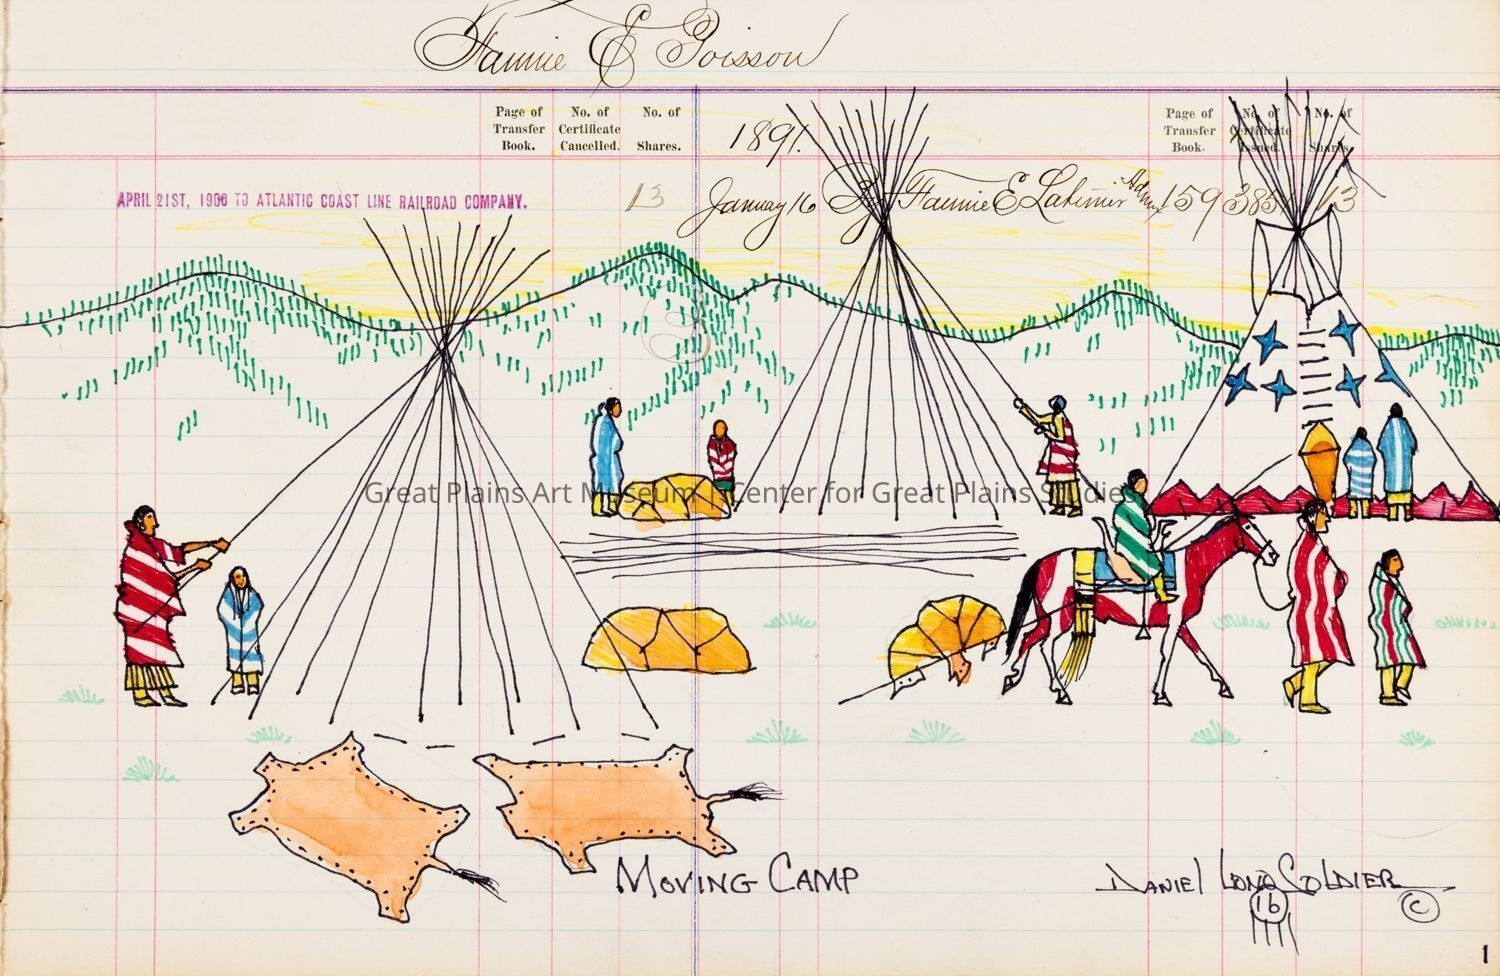 Fannie E Poisson
Page of Transfer Book.
No. of Certificate Cancelled.
No. of Shares.
1891.
Page of Transfer Book.
No. of Certificate Issued.
No. of Shares.
APRIL 21ST, 1900 TO ATLANTIC COAST LINE RAILROAD COMPANY.
13
January 16 By Fannie E Latimer Admx 159 385 13
Great Plains Art Museum | Center for Great Plains Studies
MOVING CAMP
DANIEL LONG SOLDIER
16
©
1